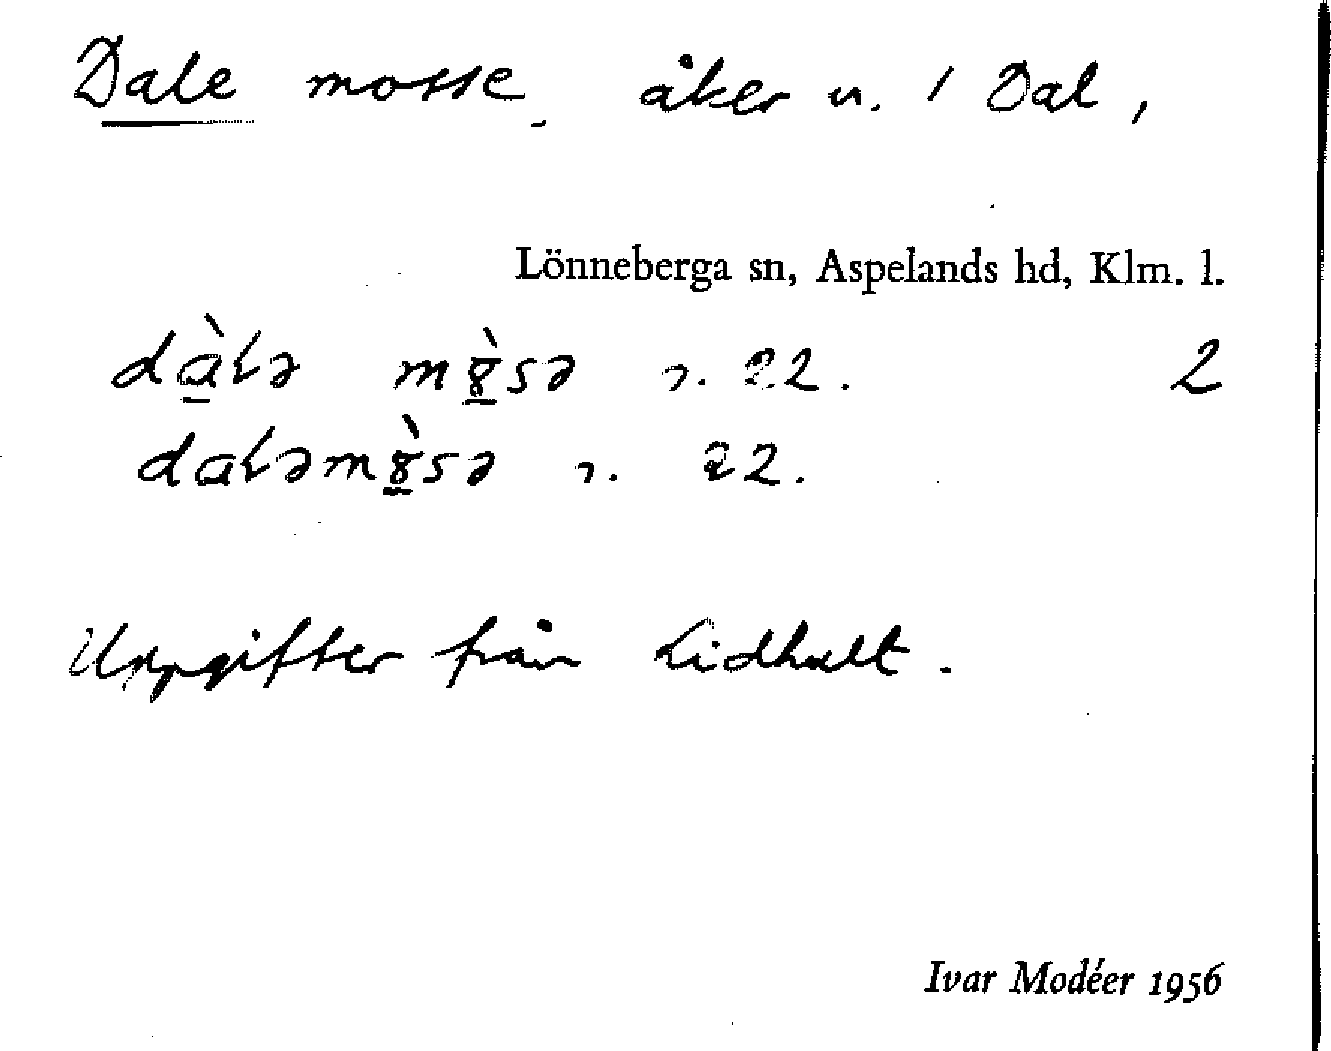 Dale mosse, åker u. 1 Dal,
Lönneberga sn, Aspelands hd, Klm. l.
2
22.
22.
Uppgifter från Lidhult.
Ivar Modéer 1956